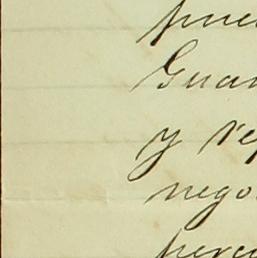 pue
Guar
y rep
nego
perc